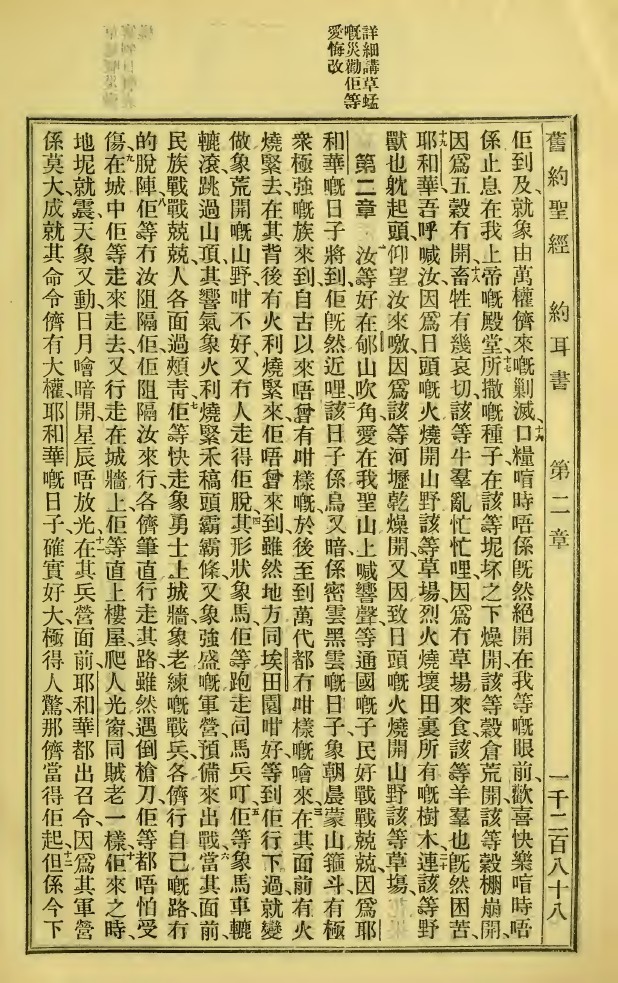 詳細講草蜢
嘅災勸佢等
愛悔改
舊約聖經 約耳書 第二章 一千二百八十八
佢到及、就象由萬權儕來嘅剿滅、十六口糧唷時唔係旣然絕開、在我等嘅眼前、歡喜快樂唷時唔
係止息在我上帝嘅殿堂、十七所撒嘅種子在該等坭坏之下燥開、該等穀倉荒開、該等穀棚崩開、
因爲五穀冇開、十八畜牲有幾哀切、該等牛羣亂忙忙哩、因爲冇草場來食、該等羊羣也旣然困苦、
十九耶和華吾呼喊汝、因爲日頭嘅火燒開山野該等草場、烈火燒壞田裏所有嘅樹木、二十連該等野
獸也躭起頭、仰望汝來噭、因爲該等河壢乾燥開、又因致日頭嘅火燒開山野該等草塲、
第二章 一汝等好在郇山吹角、愛在我聖山上喊響聲、等通國嘅子民好戰戰兢兢、因爲耶
和華嘅日子將到、佢旣然近哩、二該日子係烏又暗、係密雲黑雲嘅日子、象朝晨蒙山箍斗、有極
衆極強嘅族來到、自古以來唔曾有咁樣嘅、於後至到萬代都冇咁樣嘅噲來、三在其面前有火
燒緊去、在其背後有火利燒緊來、佢唔曾來到、雖然地方同埃田園咁好、等到佢行下過、就變
做象荒開嘅山野咁不好、又冇人走得佢脫、四其形狀象馬、佢等跑走向馬兵叮、五佢等象馬車轆
轆滾跳過山頂、其響氣象火利燒緊禾稿頭霸霸條、又象強盛嘅軍營預備來出戰、六當其面前、
民族戰戰兢兢、人各面過頰靑、七佢等快走象勇士、上城牆象老練嘅戰兵、各儕行自己嘅路、冇
的脫陣、八佢等冇汝阻隔佢、佢阻隔汝來行、各儕筆直行走其路、雖然遇倒槍刀、佢等都唔怕受
傷、九在城中佢等走來走去、又行走在城牆上、佢等直上樓屋、爬人光窗、同賊老一樣、十佢來之時、
地坭就震、天象又動、日月噲暗開、星辰唔放光、十一在其兵營面前、耶和華都出召令、因爲其軍營
係莫大、成就其命令儕有大權、耶和華嘅日子確實好大、極得人驚、那儕當得佢起、十二但係今下